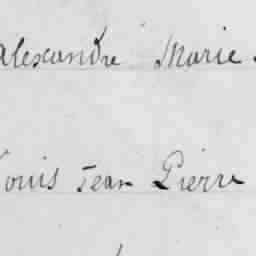 alexandre Marie
Louis Jean Pierre